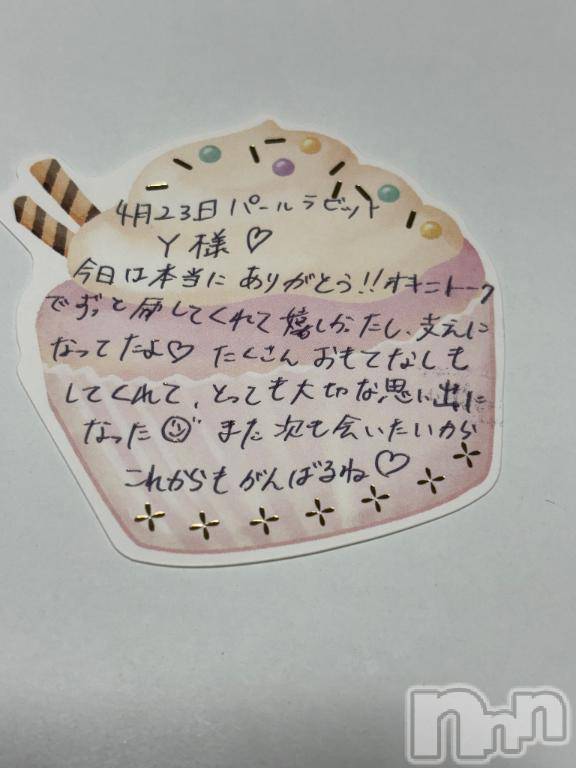 4月23日 パールラビット
Y様♡
今日は本当に ありがとう!!オキニトーク
でずっと 話してくれて 嬉しかったし、支えに
なってたよ♡ たくさん おもてなしも
してくれて、とっても大切な思い出に
なった☺ また次も会いたいから
これからも がんばるね♡
nnn